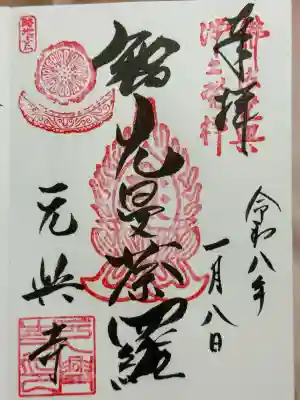 奉拝
令和八年
一月八日
智光曼荼羅
元興寺